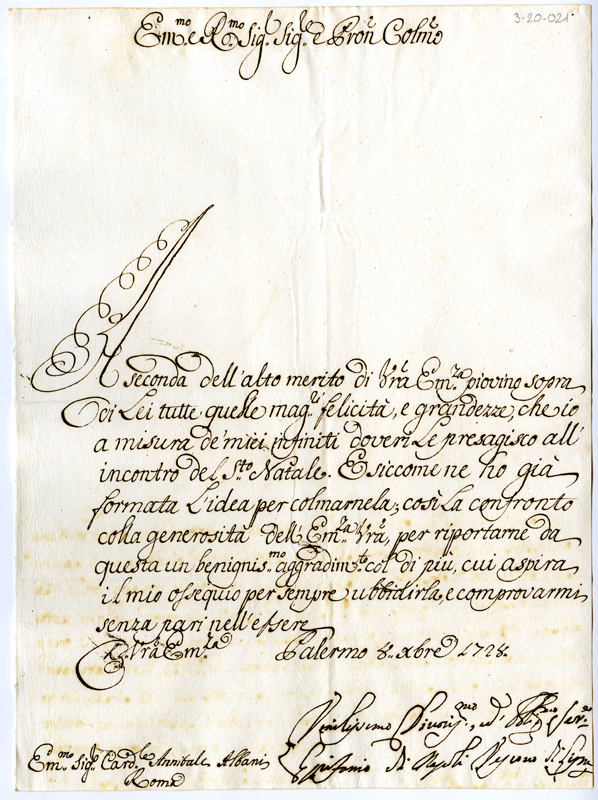 3-20-021
Em.mo e R.mo Sig.r Sig.r e Pron Colmo
A seconda dell'alto merito di Vrã Em.za piovino sopra
di Lei tutte quelle mag.ri felicità, e grandezze, che io
a misura de' miei infiniti doveri Le presagisco all'
incontro del S.to Natale. E siccome ne ho già
formata l'idea per colmarnela; così La confronto
colla generosità dell'Em.za Vrã, per riportarne da
questa un benignis.mo aggradim.to col di più, cui aspira
il mio ossequio per sempre ubbidirla, e comprovarmi
senza pari nell'essere
Di Vrã Em.za Palermo 8. xbre 1728.
Umilissimo Divotis.mo, ed Obblig.mo Ser.re
Em.mo Sig.r Card.le Annibale Albani Epifanio di Napoli Vescovo di
Roma